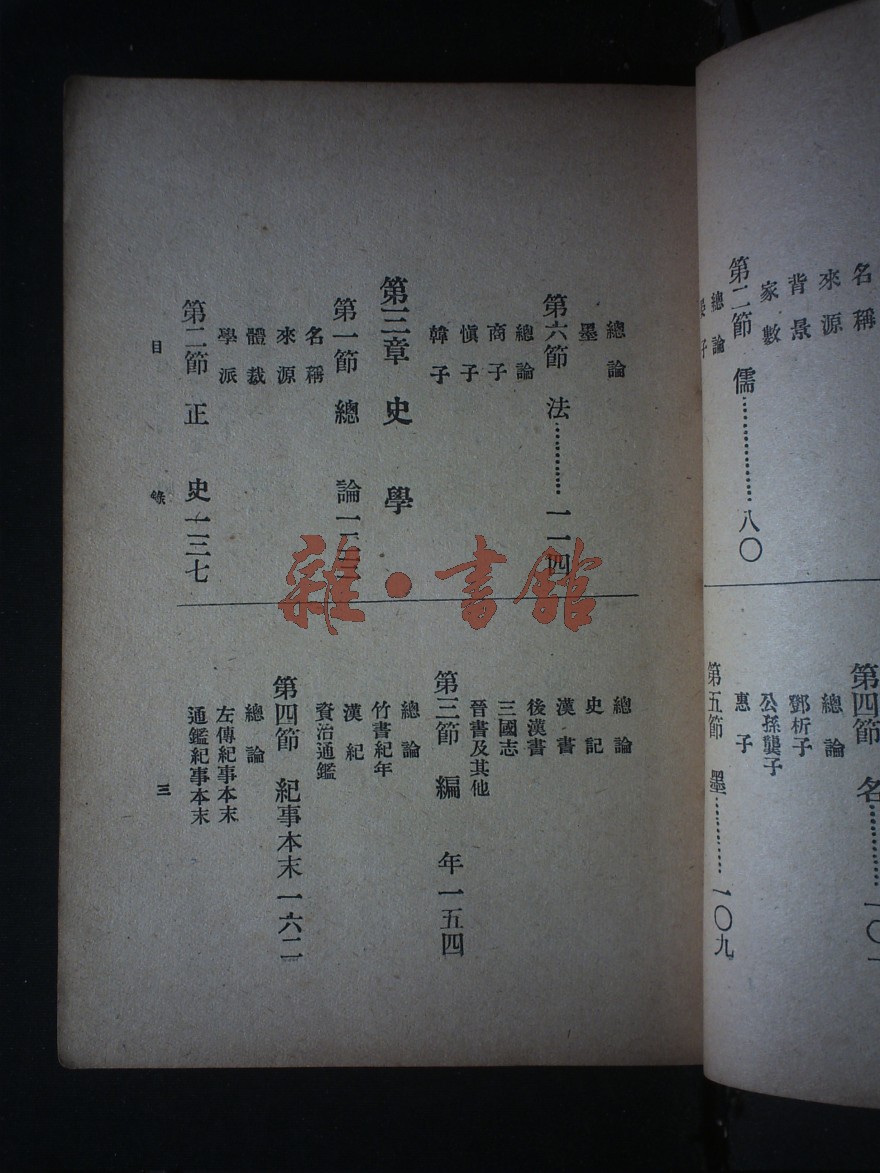 名稱
來源
背景
家數
第二節 儒……………八〇
總論
第四節 名…………
總論
鄧析子
公孫龔子
惠子
第五節 墨…………一〇九
總論
墨
第六節 法…………一一四
總論
商子
愼子
韓子
第三章 史學
第一節 總論
名稱
來源
體裁
學派
第二節 正史一三七
總論
史記
漢書
後漢書
三國志
晉書及其他
第三節 編年一五四
總論
竹書紀年
漢紀
資治通鑑
第四節 紀事本末一六二
總論
左傳紀事本末
通鑑紀事本末
目錄
三
雜·書館